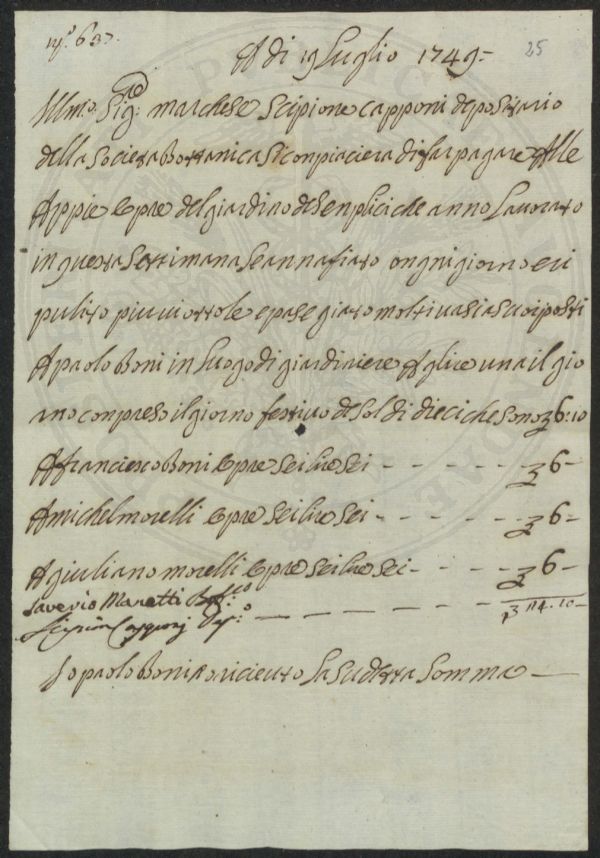 nº. 637.
A di 19 Luglio 1749= 25
Illmo. Sig: marchese Scipione Capponi depositario
della Societa Bottanica Si conpiaciera di far pagare Alle
Appie Opre del giardino de Senplici che anno Lavorato
in questa Settimana Se annafiato ongni giorno e ri
pulito piu viottole e pasegiato molti vasi a suoi posti
A paolo Boni in Luogo di giardiniere A lire una il gio
rno conpreso il giorno festivo de Soldi dieci che sono 6:10
A francesco Boni Opre Sei lire Sei - - - - - 6-
A michel morelli Opre Sei lire Sei - - - - - 6-
A giuliano morelli Opre Sei lire Sei - - - - 6-
Saverio Manetti
Scipion Capponj Dep:o - - - - - 24.10-
Io paolo Boni o riceuto La Sudetta Somma —